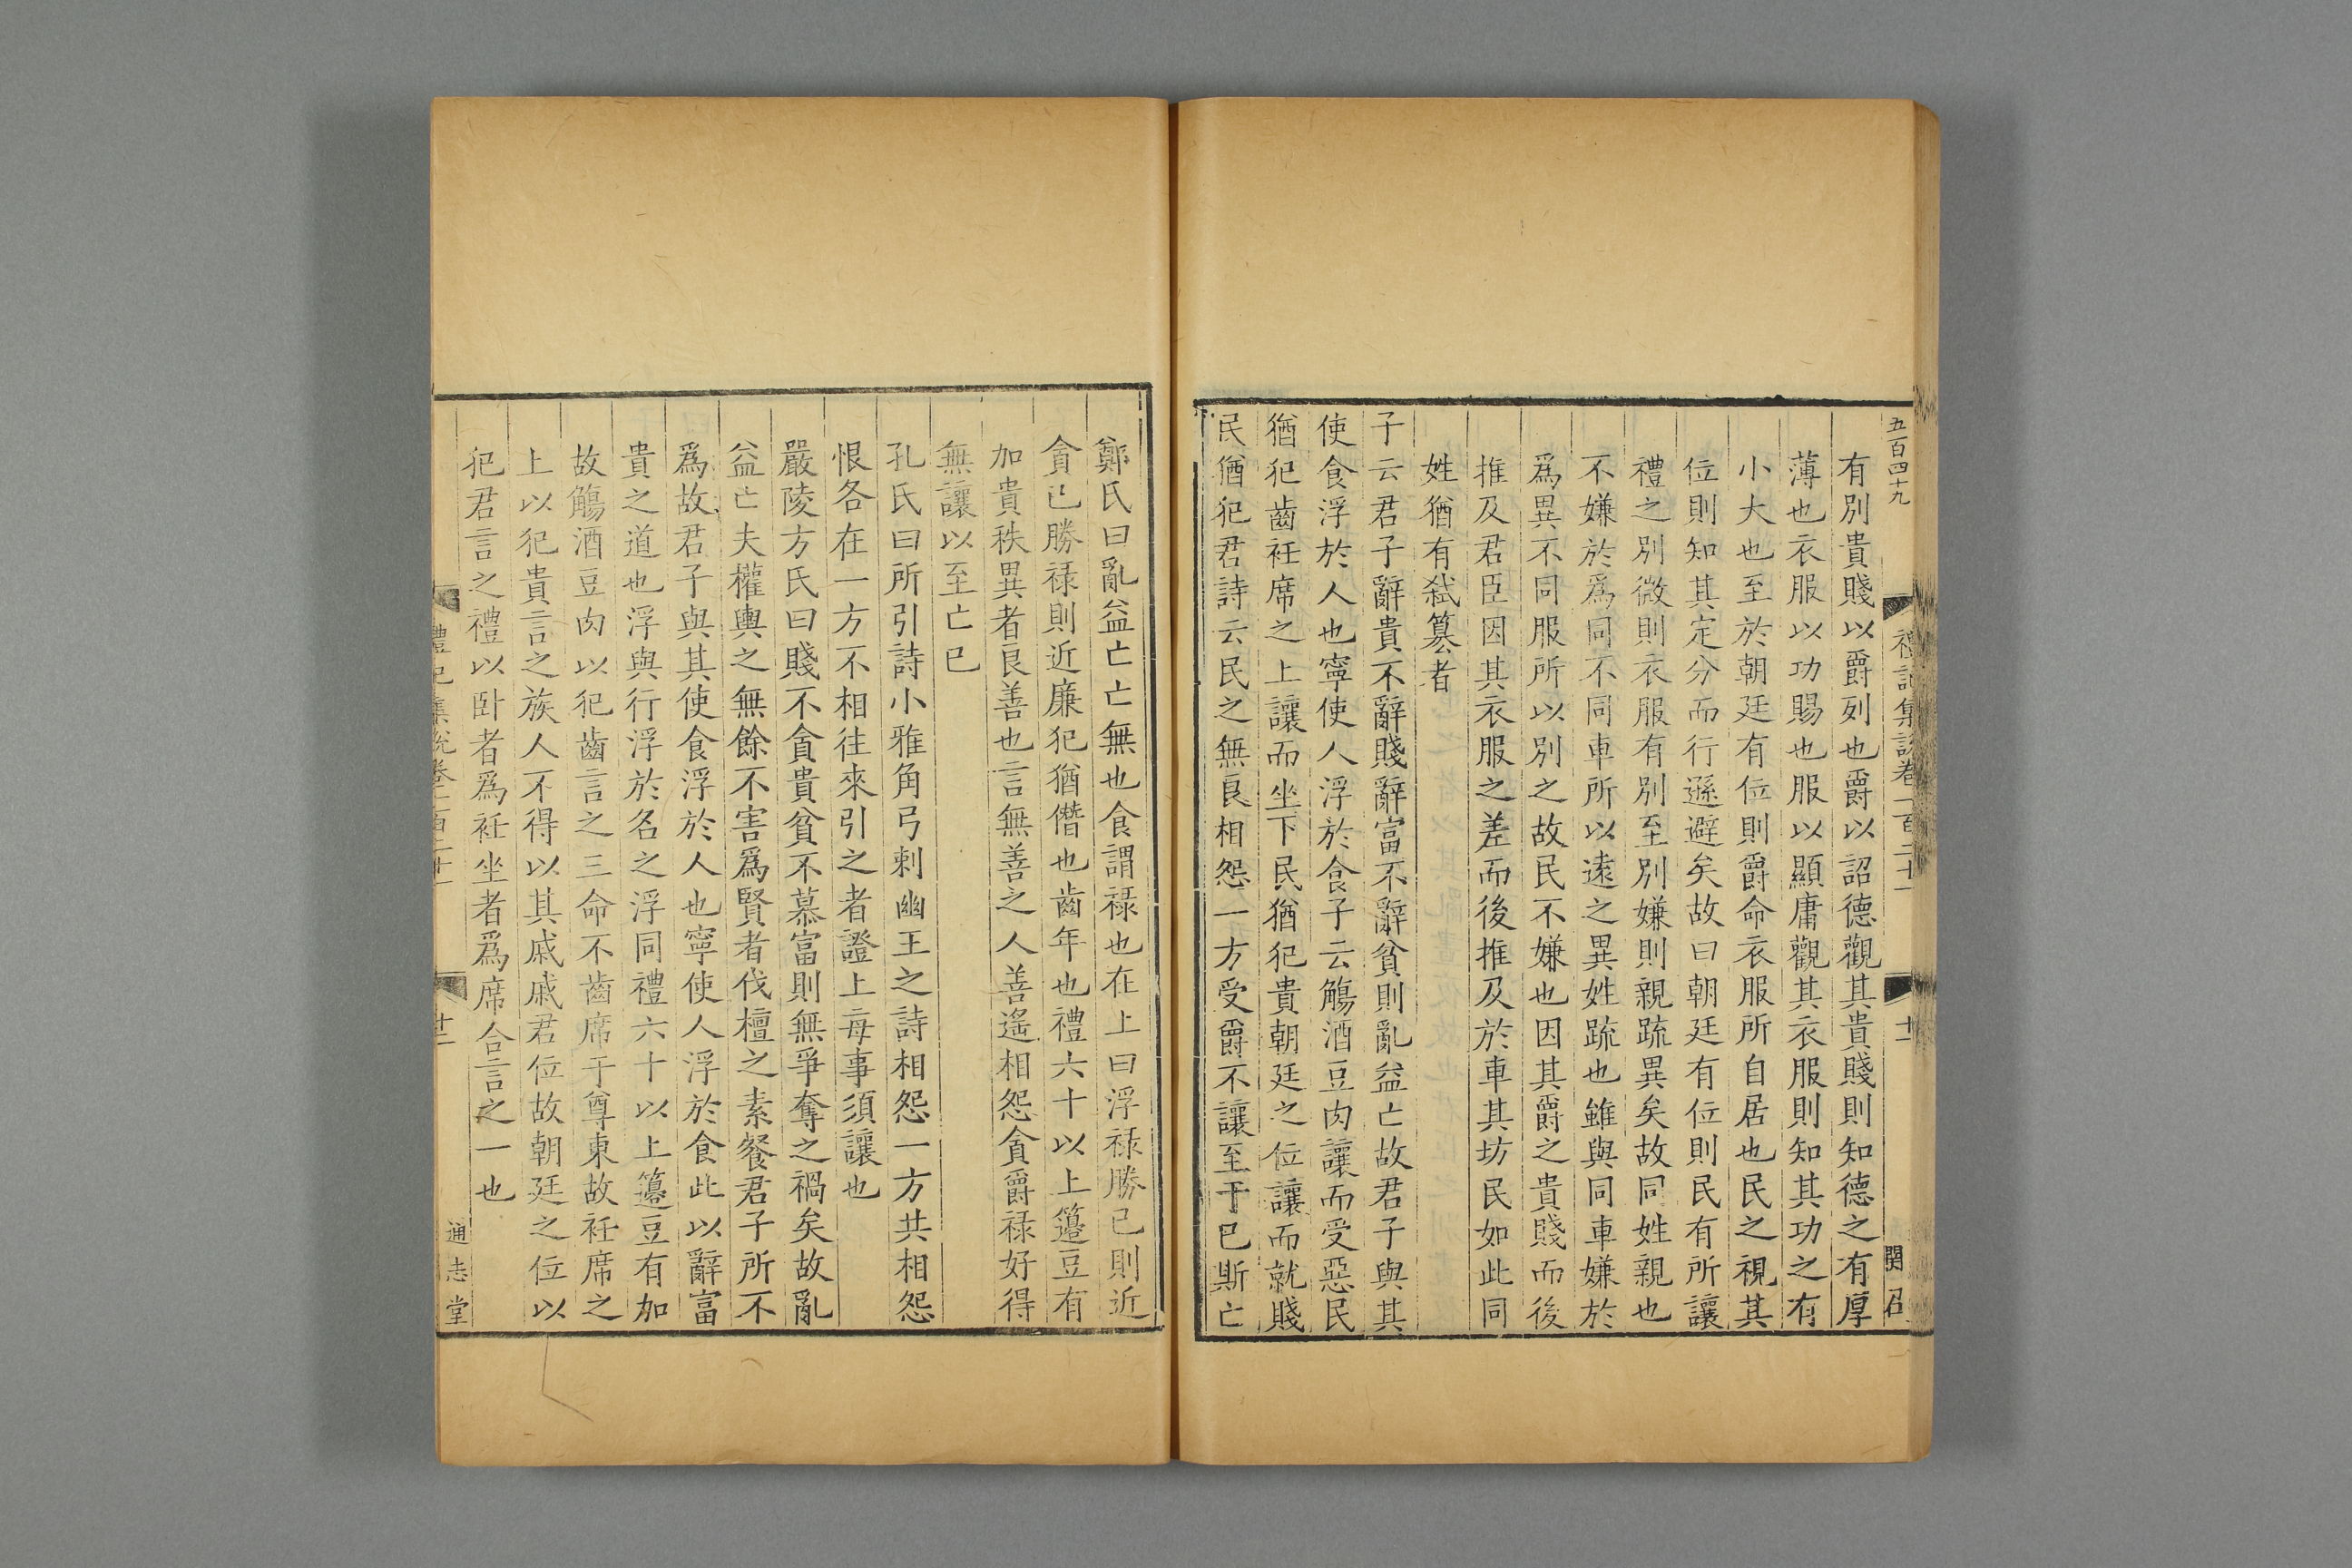 五百四十九
禮記集說卷一百二十一
十一
閔召
有別貴賤以爵列也爵以詔德觀其貴賤則知德之有厚
薄也衣服以功賜也服以顯庸觀其衣服則知其功之有
小大也至於朝廷有位則爵命衣服所自居也民之視其
位則知其定分而行遜避矣故曰朝廷有位則民有所讓
禮之別微則衣服有別至別嫌則親疏異矣故同姓親也
不嫌於爲同不同車所以遠之異姓疏也雖與同車嫌於
爲異不同服所以別之故民不嫌也因其爵之貴賤而後
推及君臣因其衣服之差而後推及於車其坊民如此同
姓猶有弑篡者
子云君子辭貴不辭賤辭富不辭貧則亂益亡故君子與其
使食浮於人也寧使人浮於食子云觴酒豆肉讓而受惡民
猶犯齒衽席之上讓而坐下民猶犯貴朝廷之位讓而就賤
民猶犯君詩云民之無良相怨一方受爵不讓至于已斯亡
鄭氏曰亂益亡亡無也食謂祿也在上曰浮祿勝已則近
貪已勝祿則近廉犯猶僭也齒年也禮六十以上籩豆有
加貴秩異者良善也言無善之人善遙相怨貪爵祿好得
無讓以至亡已
孔氏曰所引詩小雅角弓刺幽王之詩相怨一方共相怨
恨各在一方不相往來引之者證上每事須讓也
嚴陵方氏曰賤不貪貴貧不慕富則無爭奪之禍矣故亂
益亡夫權輿之無餘不害爲賢者伐檀之素餐君子所不
爲故君子與其使食浮於人也寧使人浮於食此以辭富
貴之道也浮與行浮於名之浮同禮六十以上籩豆有加
故觴酒豆肉以犯齒言之三命不齒席于尊東故衽席之
上以犯貴言之族人不得以其戚戚君位故朝廷之位以
犯君言之禮以卧者爲衽坐者爲席合言之一也
禮記集說卷一百二十一
十二
通志堂